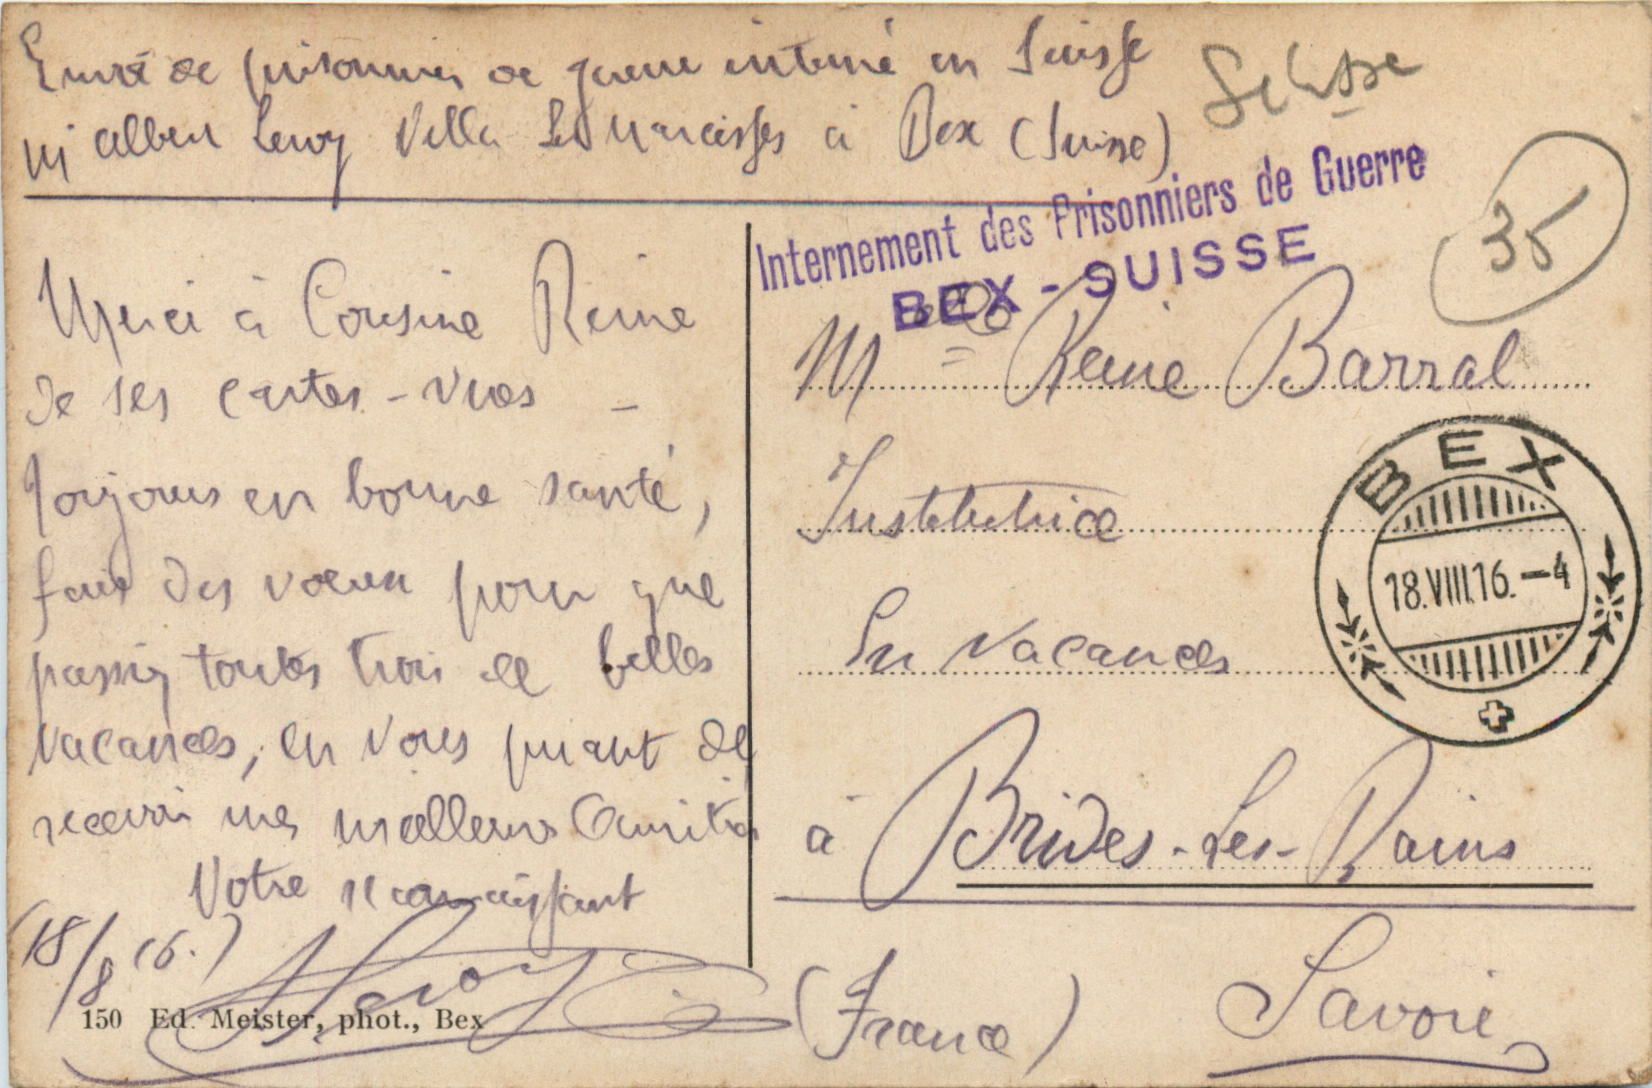 Envoi de prisonnier de guerre interné en Suisse
M Albert Leroy Villa Les Narcisses à Bex (Suisse)
Suisse
Internement des Prisonniers de Guerre
BEX - SUISSE
35
Merci à Cousine Reine
de ses cartes-vues -
Toujours en bonne santé,
fais des voeux pour que
passiez toutes trois de belles
vacances, en vous priant de
recevoir mes meilleures Amitiés
Votre reconnaissant
(18/8 16.)
ALeroy
150 Ed. Meister, phot., Bex
Mlle Reine Barral
Institutrice
En Vacances
à Brides-Les-Bains
(France) Savoie
BEX
18.VIII.16.-4